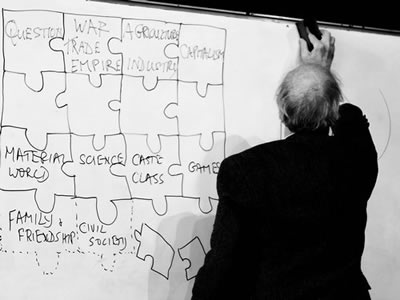 QUESTION
WAR
TRADE
EMPIRE
AGRICULTURE
INDUSTRY
CAPITALISM
MATERIAL
WORLD
SCIENCE
CASTE
CLASS
GAMES
FAMILY &
FRIENDSHIP
CIVIL
SOCIETY